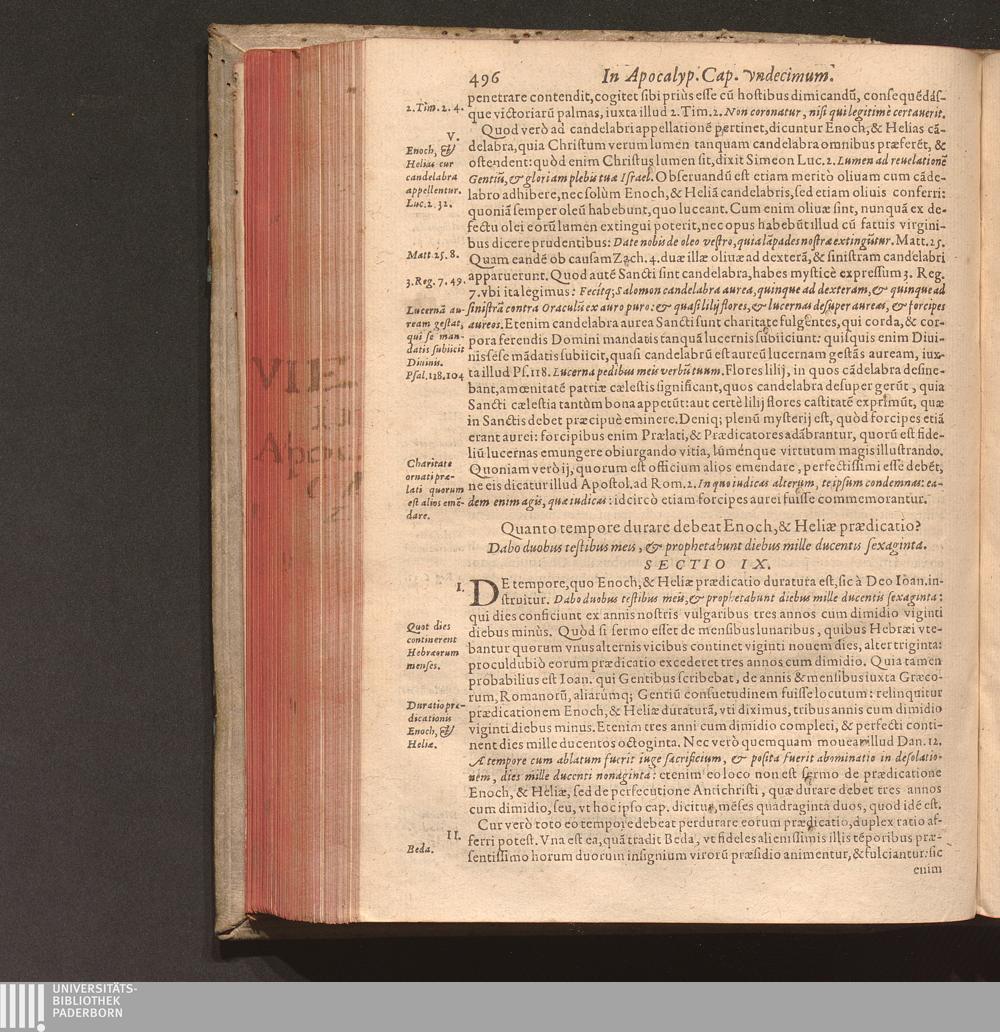 496 In Apocalyp. Cap. vndecimum.
penetrare contendit, cogitet sibi priùs esse cũ hostibus dimicandũ, consequẽdás-
que victoriarũ palmas, iuxta illud 2. Tim. 2. Non coronatur, nisi qui legitimè certauerit.
2. Tim. 2. 4.
Quod verò ad candelabri appellationẽ pertinet, dicuntur Enoch, & Helias cã-
delabra, quia Christum verum lumen tanquam candelabra omnibus præferẽt, &
ostendent: quòd enim Christus lumen sit, dixit Simeon Luc. 2. Lumen ad reuelationẽ
Gentiũ, & gloriam plebis tuæ Israel. Obseruandũ est etiam meritò oliuam cum cãde-
labro adhibere, nec solùm Enoch, & Heliã candelabris, sed etiam oliuis conferri:
quoniã semper oleũ habebunt, quo luceant. Cum enim oliuæ sint, nunquã ex de-
fectu olei eorũ lumen extingui poterit, nec opus habebũt illud cũ fatuis virgini-
bus dicere prudentibus: Date nobis de oleo vestro, quia lãpades nostræ extingũtur. Matt. 25.
V.
Enoch, &
Helias cur
candelabra
appellentur.
Luc. 2. 32.
Matt. 25. 8.
Quam eandẽ ob causam Zach. 4. duæ illæ oliuæ ad dexterã, & sinistram candelabri
apparuerunt. Quod autẽ Sancti sint candelabra, habes mysticè expressum 3. Reg.
7. vbi ita legimus: Fecítq; Salomon candelabra aurea, quinque ad dexteram, & quinque ad
sinistrã contra Oraculũ ex auro puro: & quasi lilij flores, & lucernas desuper aureas, & forcipes
aureos. Etenim candelabra aurea Sancti sunt charitate fulgentes, qui corda, & cor-
pora ferendis Domini mandatis tanquã lucernis subiiciunt: quisquis enim Diui-
nis sése mãdatis subiicit, quasi candelabrũ est aureũ lucernam gestãs auream, iux-
ta illud Ps. 118. Lucerna pedibus meis verbũ tuum. Flores lilij, in quos cãdelabra desine-
bant, amœnitatẽ patriæ cælestis significant, quos candelabra desuper gerũt, quia
Sancti cælestia tantùm bona appetũt: aut certè lilij flores castitatẽ exprimũt, quæ
in Sanctis debet præcipuè eminere. Deniq; plenũ mysterij est, quòd forcipes etiã
erant aurei: forcipibus enim Prælati, & Prædicatores adũbrantur, quorũ est fide-
liũ lucernas emungere obiurgando vitia, lúménque virtutum magis illustrando.
Quoniam verò ij, quorum est officium alios emendare, perfectissimi esse debẽt,
ne eis dicatur illud Apostol. ad Rom. 2. In quo iudicas alterum, teipsum condemnas: ea-
dem enim agis, quæ iudicas: idcircò etiam forcipes aurei fuisse commemorantur.
3. Reg. 7. 49.
Lucernã au-
ream gestat,
qui se man-
datis subiicit
Diuinis.
Psal. 118. 104
Charitate
ornati præ-
lati quorum
est alios emẽ-
dare.
Quanto tempore durare debeat Enoch, & Heliæ prædicatio?
Dabo duobus testibus meis, & prophetabunt diebus mille ducentis sexaginta.
SECTIO IX.
I.
DE tempore, quo Enoch, & Heliæ prædicatio duratura est, sic à Deo Ioan. in-
struitur. Dabo duobus testibus meis, & prophetabunt diebus mille ducentis sexaginta:
qui dies conficiunt ex annis nostris vulgaribus tres annos cum dimidio viginti
diebus minùs. Quòd si sermo esset de mensibus lunaribus, quibus Hebræi vte-
bantur quorum vnus alternis vicibus continet viginti nouem dies, alter triginta:
proculdubiò eorum prædicatio excederet tres annos cum dimidio. Quia tamen
probabilius est Ioan. qui Gentibus scribebat, de annis & mensibus iuxta Græco-
rum, Romanorũ, aliarúmq; Gentiũ consuetudinem fuisse locutum: relinquitur
prædicationem Enoch, & Heliæ duraturã, vti diximus, tribus annis cum dimidio
viginti diebus minus. Etenim tres anni cum dimidio completi, & perfecti conti-
nent dies mille ducentos octoginta. Nec verò quemquam moueat illud Dan. 12.
A tempore cum ablatum fuerit iuge sacrificium, & posita fuerit abominatio in desolatio-
nem, dies mille ducenti nonaginta: etenim eo loco non est sermo de prædicatione
Enoch, & Heliæ, sed de persecutione Antichristi, quæ durare debet tres annos
cum dimidio, seu, vt hoc ipso cap. dicitur, mẽses quadraginta duos, quod idẽ est.
Quot dies
continerent
Hebræorum
menses.
Duratio præ-
dicationis
Enoch, &
Heliæ.
II.
Cur verò toto eo tempore debeat perdurare eorum prædicatio, duplex ratio af-
ferri potest. Vna est ea, quã tradit Beda, vt fideles alienissimis illis tẽporibus præ-
sentissimo horum duorum insignium virorũ præsidio animentur, & fulciantur: sic
Beda.
enim
UNIVERSITÄTS-
BIBLIOTHEK
PADERBORN